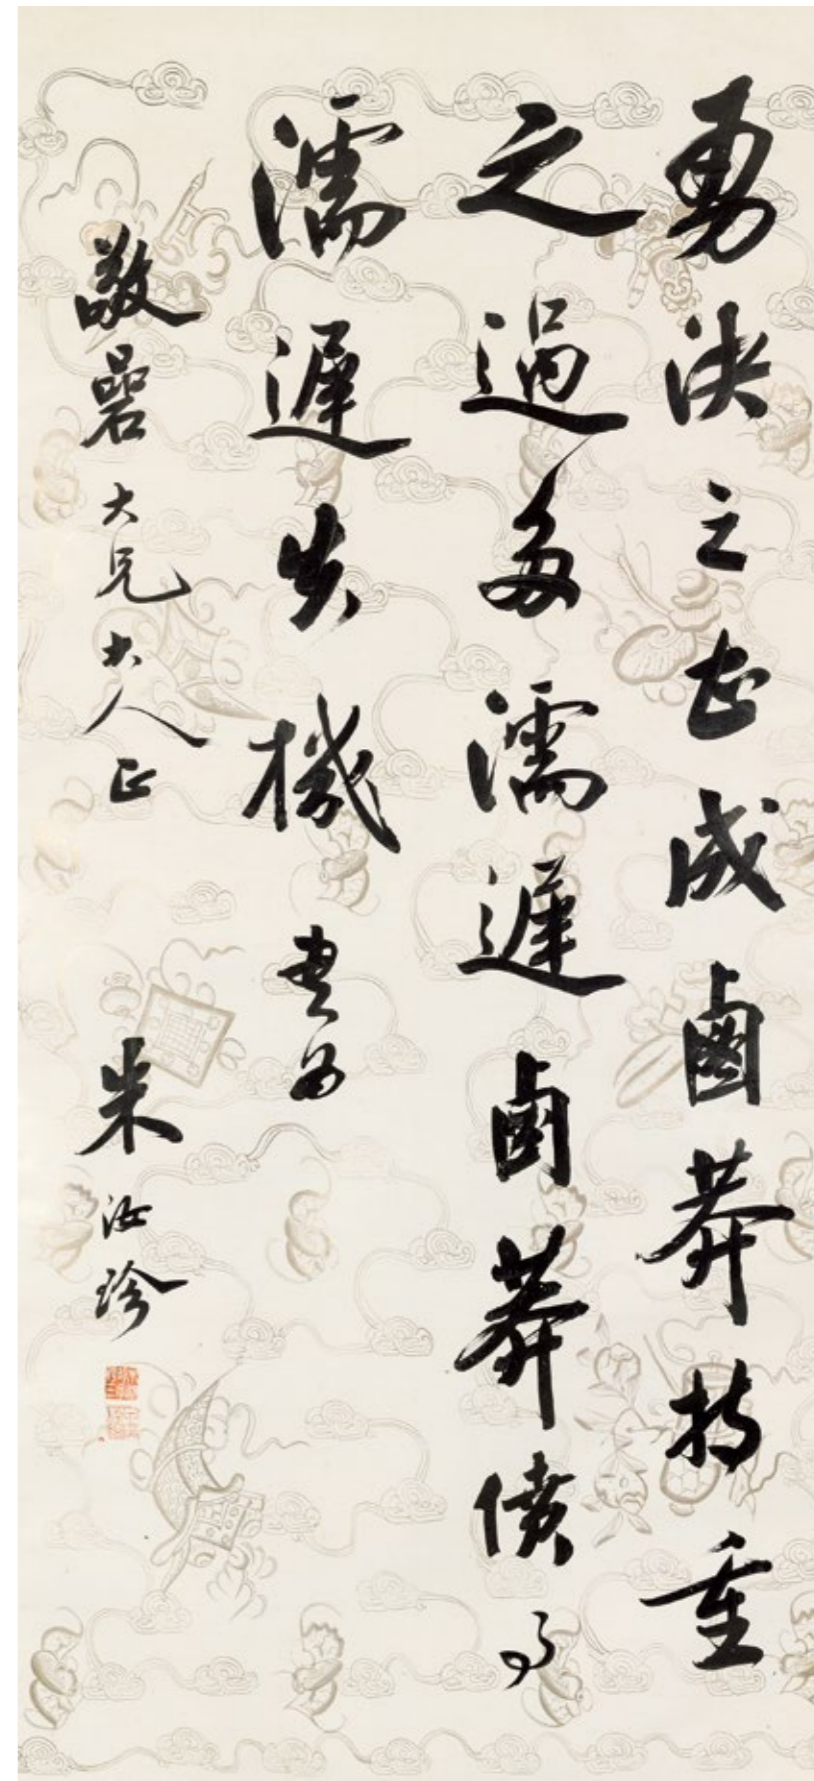 勇決之甚成鹵莽持重
之過多濡遲鹵莽僨事
濡遲失機 書為
敬碞大兄大人正
朱汝珍